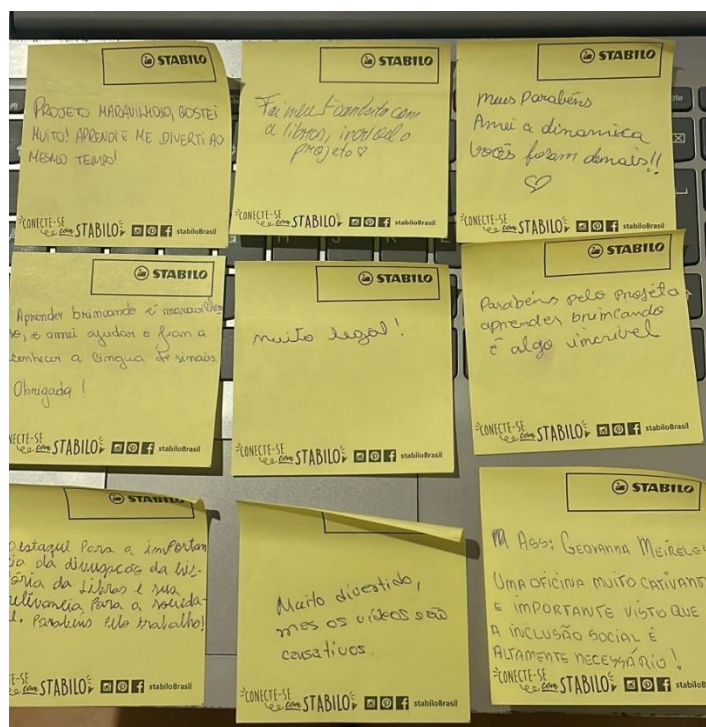 STABILO
PROJETO MARAVILHOSO, GOSTEI
MUITO! APRENDI E ME DIVERTI AO
MESMO TEMPO!
CONECTE-SE
com STABILO stabiloBrasil
STABILO
Foi meu 1º contato com
a libras, incrível o
projeto
CONECTE-SE
com STABILO stabiloBrasil
STABILO
Meus Parabéns
Amei a dinamica
vocês foram demais!!
CONECTE-SE
com STABILO stabiloBrasil
STABILO
Aprender brincando é maravilho
so, e amei ajudar e
conhecer a lingua de sinais
Obrigada!
CONECTE-SE
com STABILO stabiloBrasil
STABILO
muito legal!
CONECTE-SE
com STABILO stabiloBrasil
STABILO
Parabéns pelo projeto,
aprender brincando
é algo incrivel
CONECTE-SE
com STABILO stabiloBrasil
STABILO
Destaqui Para a importan
ia da divugacão da his-
ória da Libras e sua
relevancia Para a socieda-
e. Parabens Pelo trabalho!
E-SE
com STABILO stabiloBrasil
Muito divertido,
mes os vídeos são
cansativos.
CONECTE-SE
com STABILO stabiloBrasil
STABILO
Ass: GEOVANNA MEIRELES
UMA OFICINA MUITO CATIVANT
E IMPORTANTE VISTO QUE
A INCLUSÃO SOCIAL É
ALTAMENTE NECESSÁRIO!
CONECTE-SE
com STABILO stabiloB